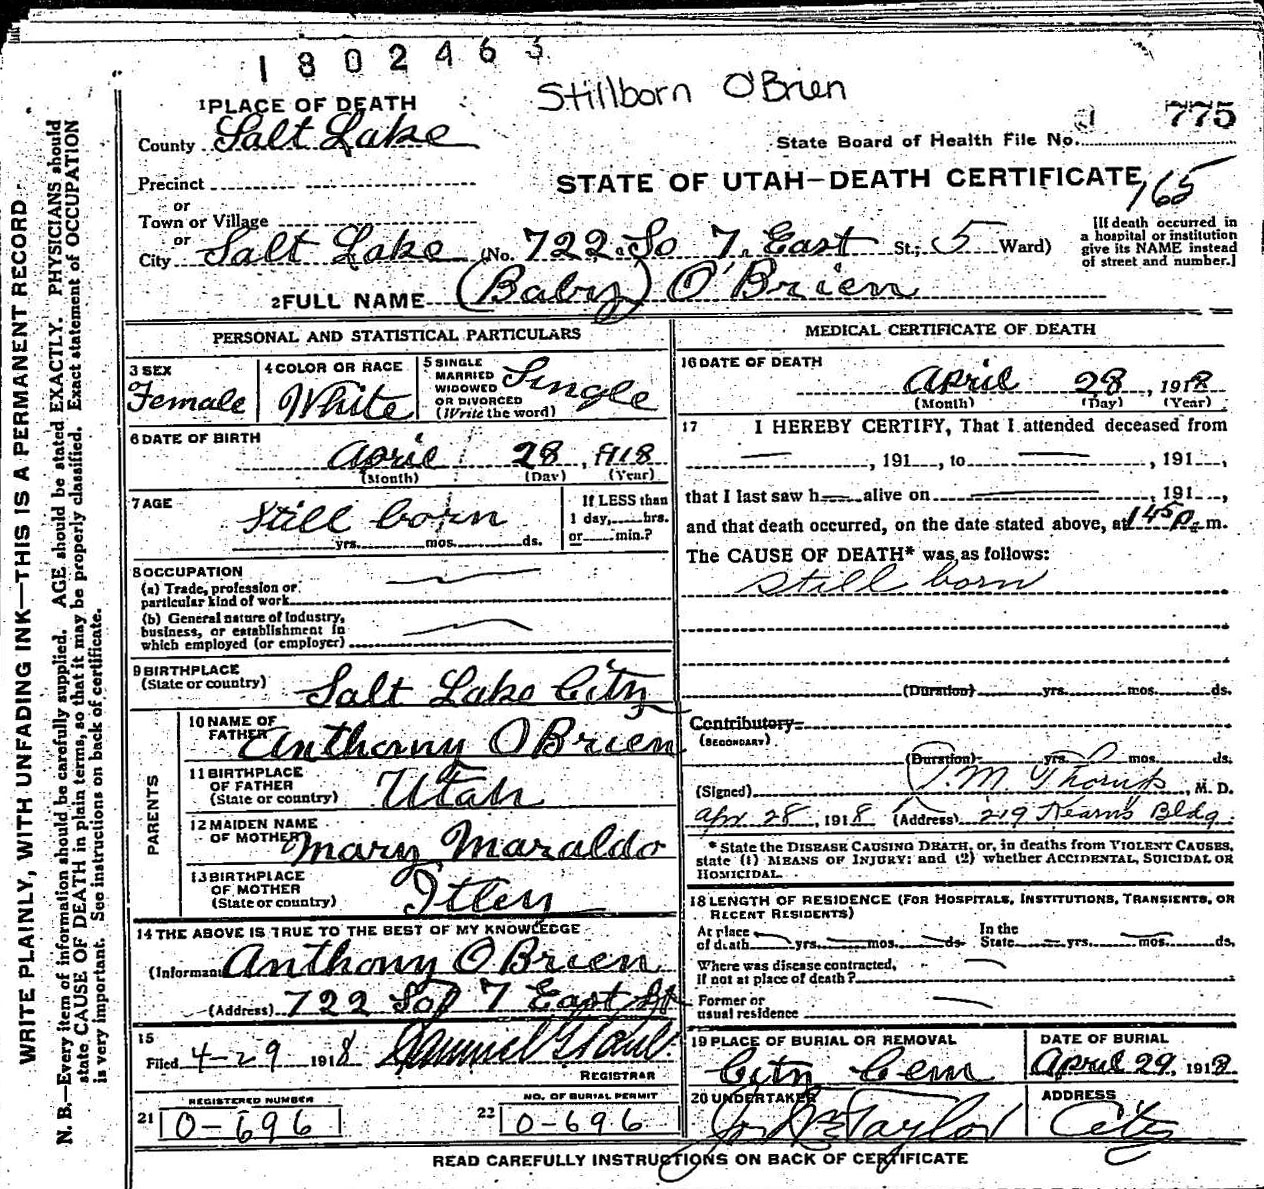 1302463
Stillborn O'Brien
1 PLACE OF DEATH
County Salt Lake
State Board of Health File No. 775
Precinct
or
STATE OF UTAH—DEATH CERTIFICATE
165
Town or Village
or
City Salt Lake (No. 722 So 7. East St.; 5 Ward)
[If death occurred in
a hospital or institution
give its NAME instead
of street and number.]
2 FULL NAME (Baby) O'Brien
PERSONAL AND STATISTICAL PARTICULARS
3 SEX
Female
4 COLOR OR RACE
White
5 SINGLE
MARRIED
WIDOWED
OR DIVORCED
(Write the word)
Single
6 DATE OF BIRTH
April 28, 1918
(Month) (Day) (Year)
7 AGE
Still born
yrs. mos. ds.
If LESS than
1 day, hrs.
or min.?
8 OCCUPATION
(a) Trade, profession or
particular kind of work
(b) General nature of Industry,
business, or establishment in
which employed (or employer)
9 BIRTHPLACE
(State or country)
Salt Lake City
PARENTS
10 NAME OF
FATHER
Anthony O Brien
11 BIRTHPLACE
OF FATHER
(State or country)
Utah
12 MAIDEN NAME
OF MOTHER
Mary Maraldo
13 BIRTHPLACE
OF MOTHER
(State or country)
Itley
14 THE ABOVE IS TRUE TO THE BEST OF MY KNOWLEDGE
(Informant Anthony O Brien
(Address) 722 So 7 East St
15
Filed 4-29 1918 Samuel G Paul
REGISTRAR
REGISTERED NUMBER
21 0-696
NO. OF BURIAL PERMIT
22 0-696
MEDICAL CERTIFICATE OF DEATH
16 DATE OF DEATH
April 28, 1918
(Month) (Day) (Year)
17 I HEREBY CERTIFY, That I attended deceased from
, 191 , to , 191 ,
that I last saw h alive on , 191 ,
and that death occurred, on the date stated above, at 1 45 p. m.
The CAUSE OF DEATH* was as follows:
Still born
(Duration) yrs. mos. ds.
Contributory
(SECONDARY)
(Duration) yrs. mos. ds.
(Signed) T. M. Thorup, M. D.
Apr 28, 1918 (Address) 219 Kearns Bldg
* State the DISEASE CAUSING DEATH, or, in deaths from VIOLENT CAUSES,
state (1) MEANS OF INJURY; and (2) whether ACCIDENTAL, SUICIDAL OR
HOMICIDAL.
18 LENGTH OF RESIDENCE (FOR HOSPITALS, INSTITUTIONS, TRANSIENTS, OR
RECENT RESIDENTS)
At place
of death yrs. mos. ds.
In the
State yrs. mos. ds.
Where was disease contracted,
if not at place of death?
Former or
usual residence
19 PLACE OF BURIAL OR REMOVAL
City Cem
DATE OF BURIAL
April 29, 1918
20 UNDERTAKER
Taylor
ADDRESS
City
READ CAREFULLY INSTRUCTIONS ON BACK OF CERTIFICATE
WRITE PLAINLY, WITH UNFADING INK—THIS IS A PERMANENT RECORD
N. B.—Every item of information should be carefully supplied. AGE should be stated EXACTLY. PHYSICIANS should
state CAUSE OF DEATH in plain terms, so that it may be properly classified. Exact statement of OCCUPATION
is very important. See instructions on back of certificate.